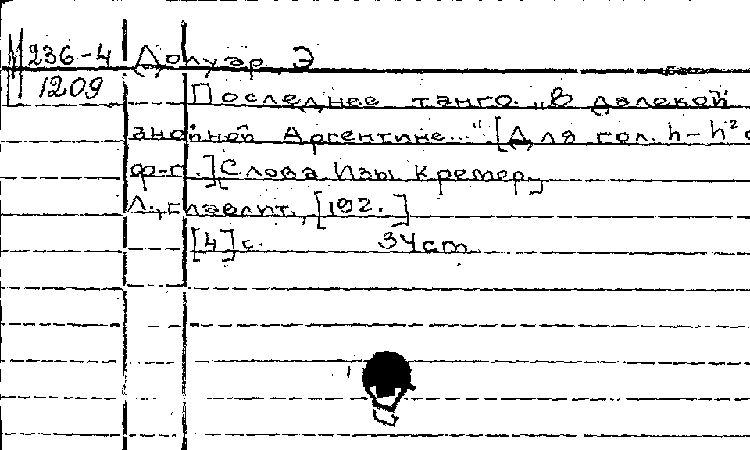 М 236-4 Долуар, Э
1209 Последнее танго. „В далекой
знойной Аргентине...". [Для гол. h-h² с
ф-п.] [Слова Изы Кремер]
Л., Главлит., [192. ]
[4] с. 34 cm